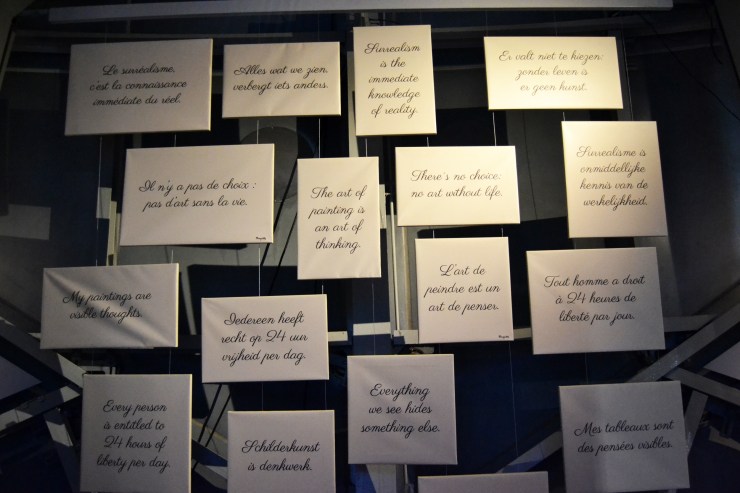 Le surréalisme,
c'est la connaissance
immédiate du réel.
Alles wat we zien,
verbergt iets anders.
Surrealism
is the
immediate
knowledge
of reality.
Er valt niet te kiezen:
zonder leven is
er geen kunst.
Il n'y a pas de choix :
pas d'art sans la vie.
The art of
painting is
an art of
thinking.
There's no choice:
no art without life.
Surrealisme is
onmiddellijke
kennis van de
werkelijkheid.
My paintings are
visible thoughts.
Iedereen heeft
recht op 24 uur
vrijheid per dag.
L'art de
peindre est un
art de penser.
Tout homme a droit
à 24 heures de
liberté par jour.
Every person
is entitled to
24 hours of
liberty per day.
Schilderkunst
is denkwerk.
Everything
we see hides
something else.
Mes tableaux sont
des pensées visibles.